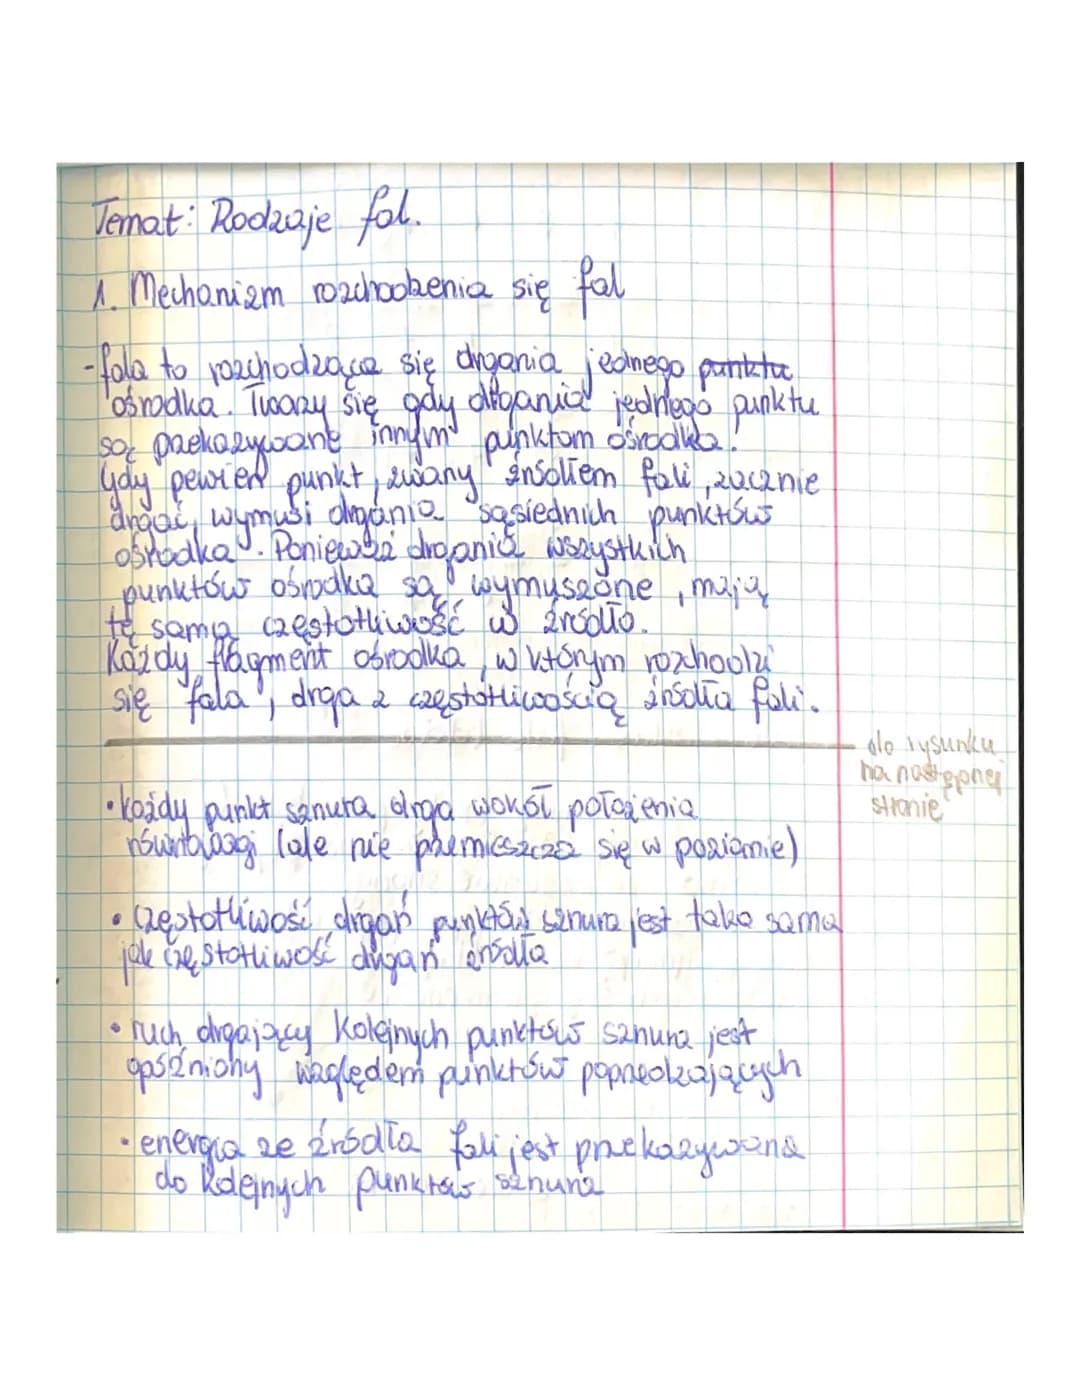 Temat: Rodzaje fal.
1. Mechanizm rozchodzenia się fal
- fala to rozchodzące się drgania jednego punktu
ośrodka. Tworzy się gdy drgania jednego punktu
są przekazywane innym punktom ośrodka.
Gdy pewien punkt, zwany źródłem fali, zacznie
drgać, wymusi drgania sąsiednich punktów
ośrodka. Ponieważ drgania wszystkich
punktów ośrodka są wymuszone, mają
tę samą częstotliwość w źródło.
Każdy fragment ośrodka, w którym rozchodzi
się fala, drga z częstotliwością źródła fali.
do rysunku
na następnej
stronie
• każdy punkt sznura drga wokół położenia
równowagi (ale nie przemieszcza się w poziomie)
• częstotliwość drgań punktów sznura jest taka sama
jak częstotliwość drgań źródła
• ruch drgający kolejnych punktów sznura jest
opóźniony względem punktów poprzedzających
• energia ze źródła fali jest przekazywana
do kolejnych punktów sznura